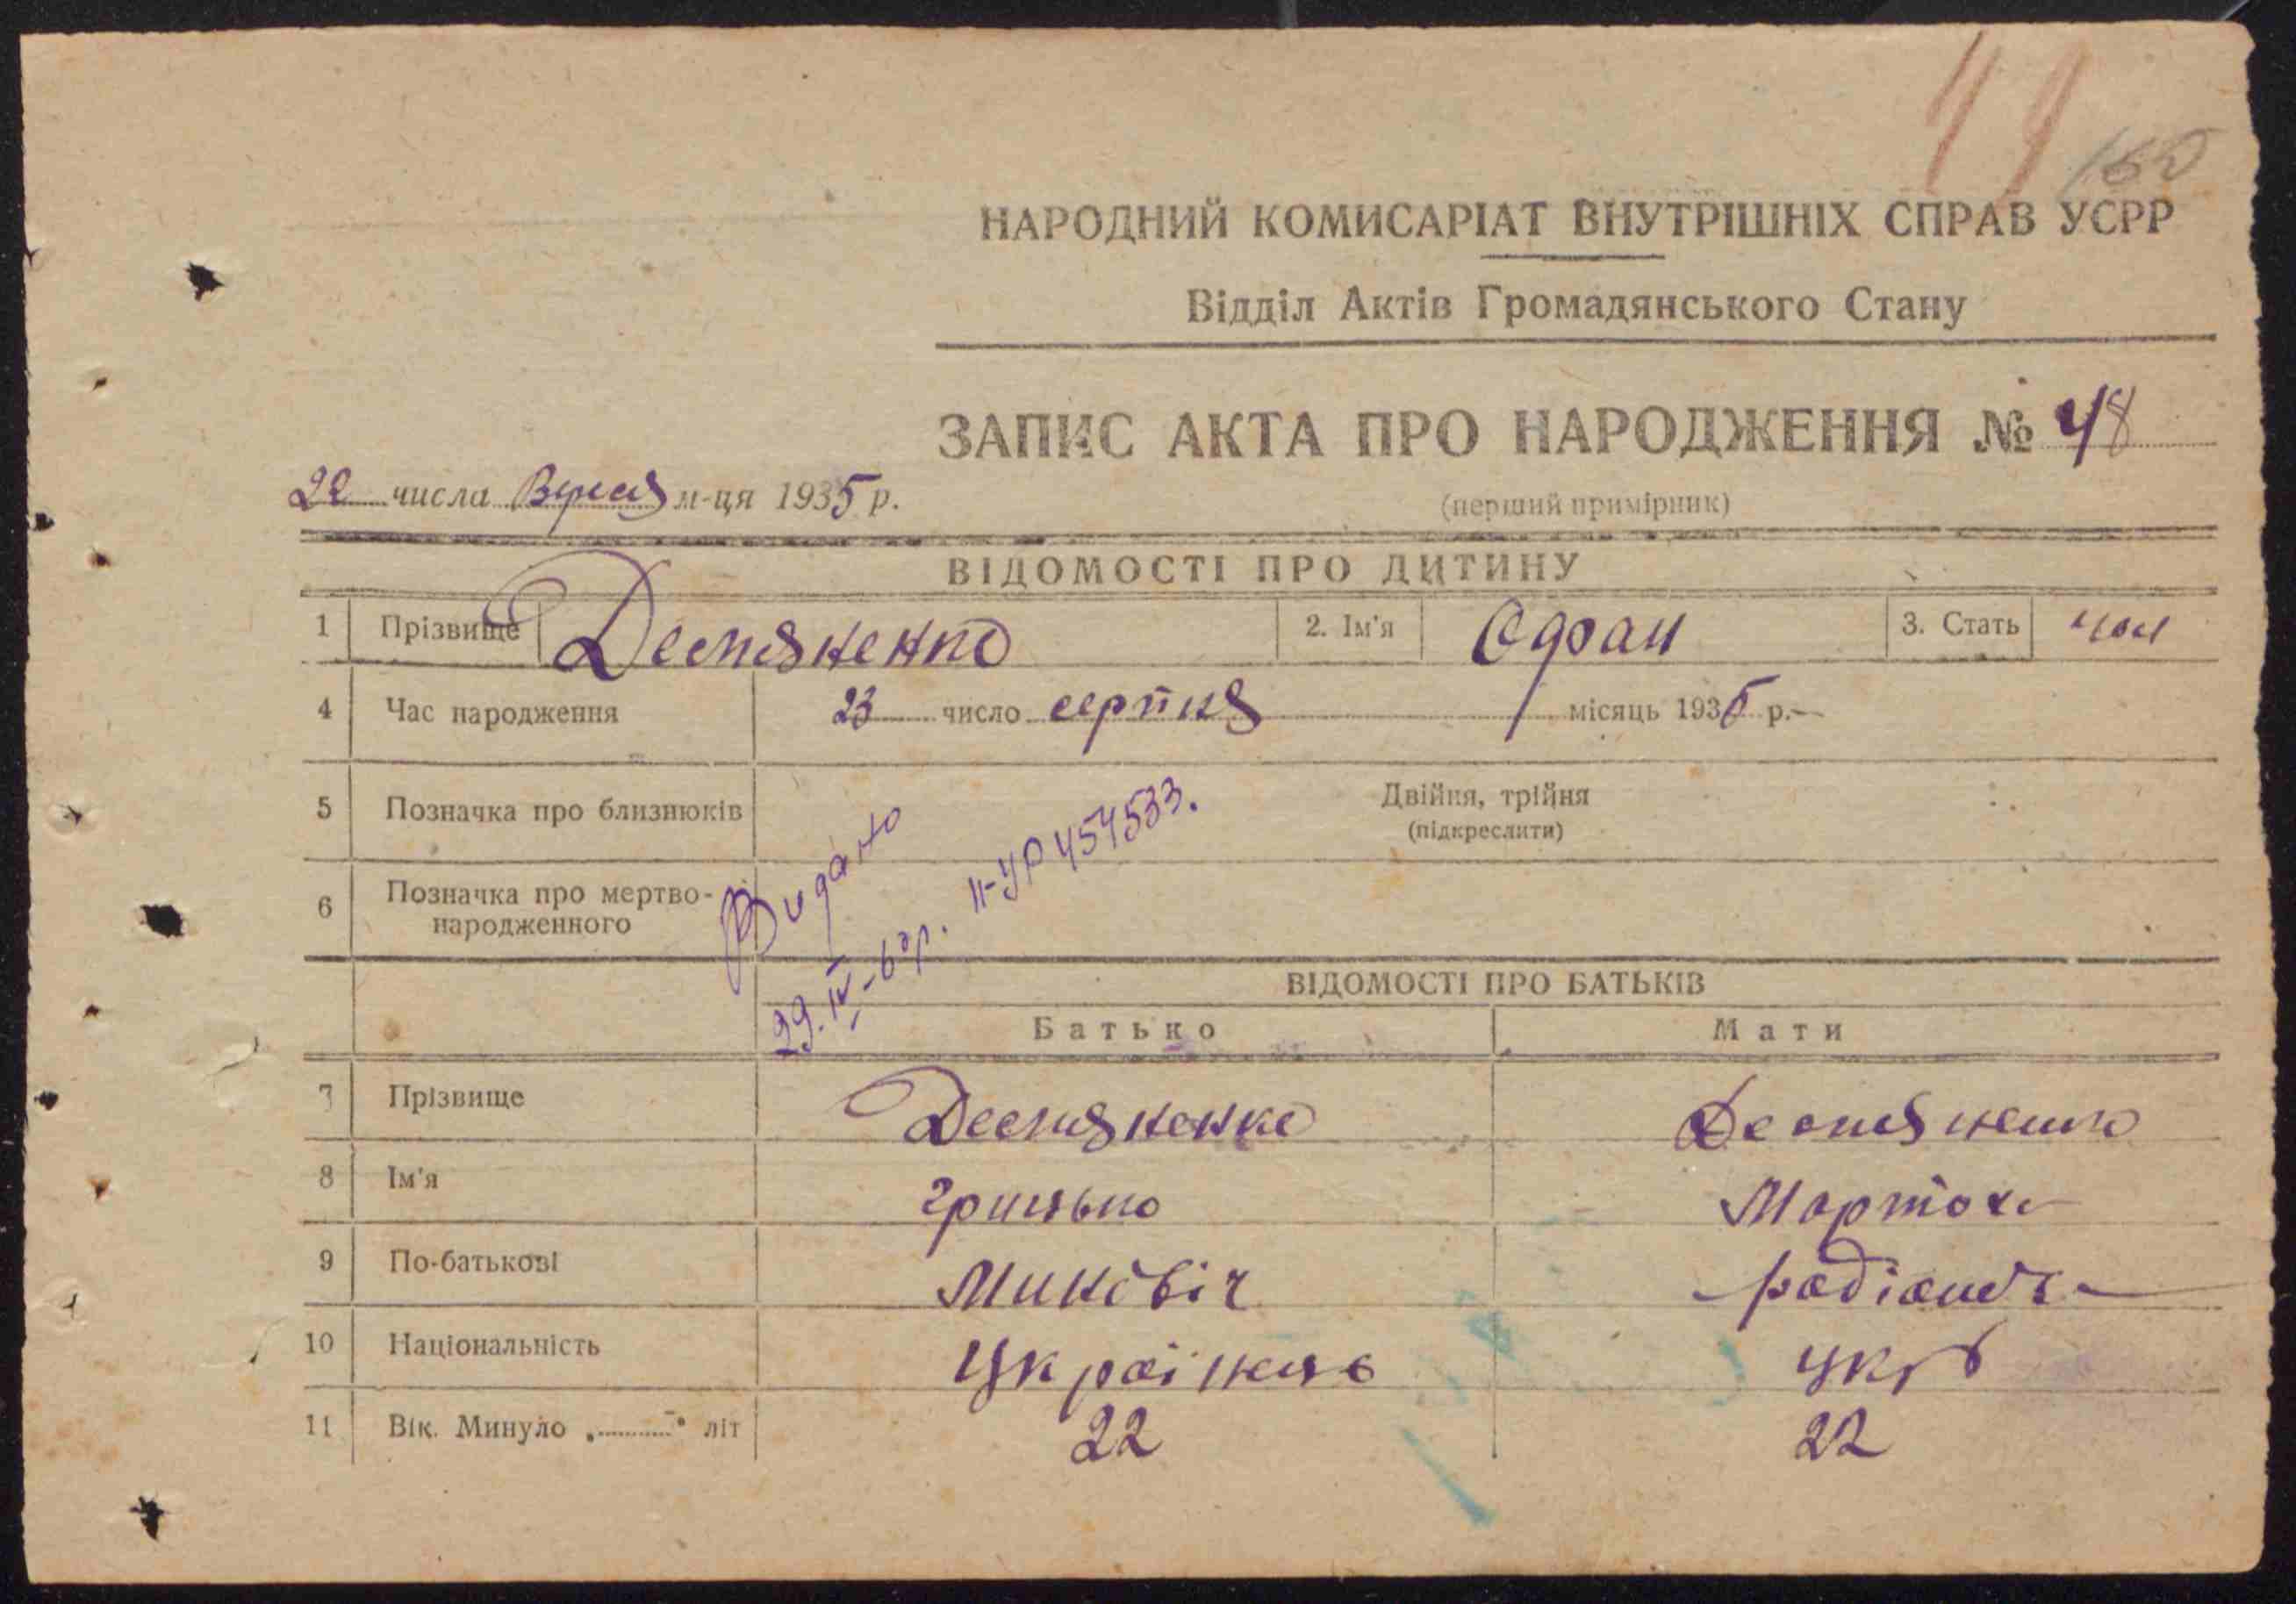 49
150
НАРОДНИЙ КОМИСАРІАТ ВНУТРІШНІХ СПРАВ УСРР
Відділ Актів Громадянського Стану
ЗАПИС АКТА ПРО НАРОДЖЕННЯ № 48
22 числа Вересня м-ця 1935 р.
(перший примірник)
ВІДОМОСТІ ПРО ДИТИНУ
1 Прізвище Десняненко 2. Ім'я 3. Стать чол
4 Час народження 23 число серпня місяць 1935 р.
5 Позначка про близнюків Двійня, трійня
(підкреслити)
6 Позначка про мертво-
народженного
Видано
29. IV-62р. II-УР 454533.
ВІДОМОСТІ ПРО БАТЬКІВ
Батько Мати
7 Прізвище Десняненко Десняненко
8 Ім'я Гринько
9 По-батькові
10 Національність Українець укр
11 Вік. Минуло „..........“ літ 22 22